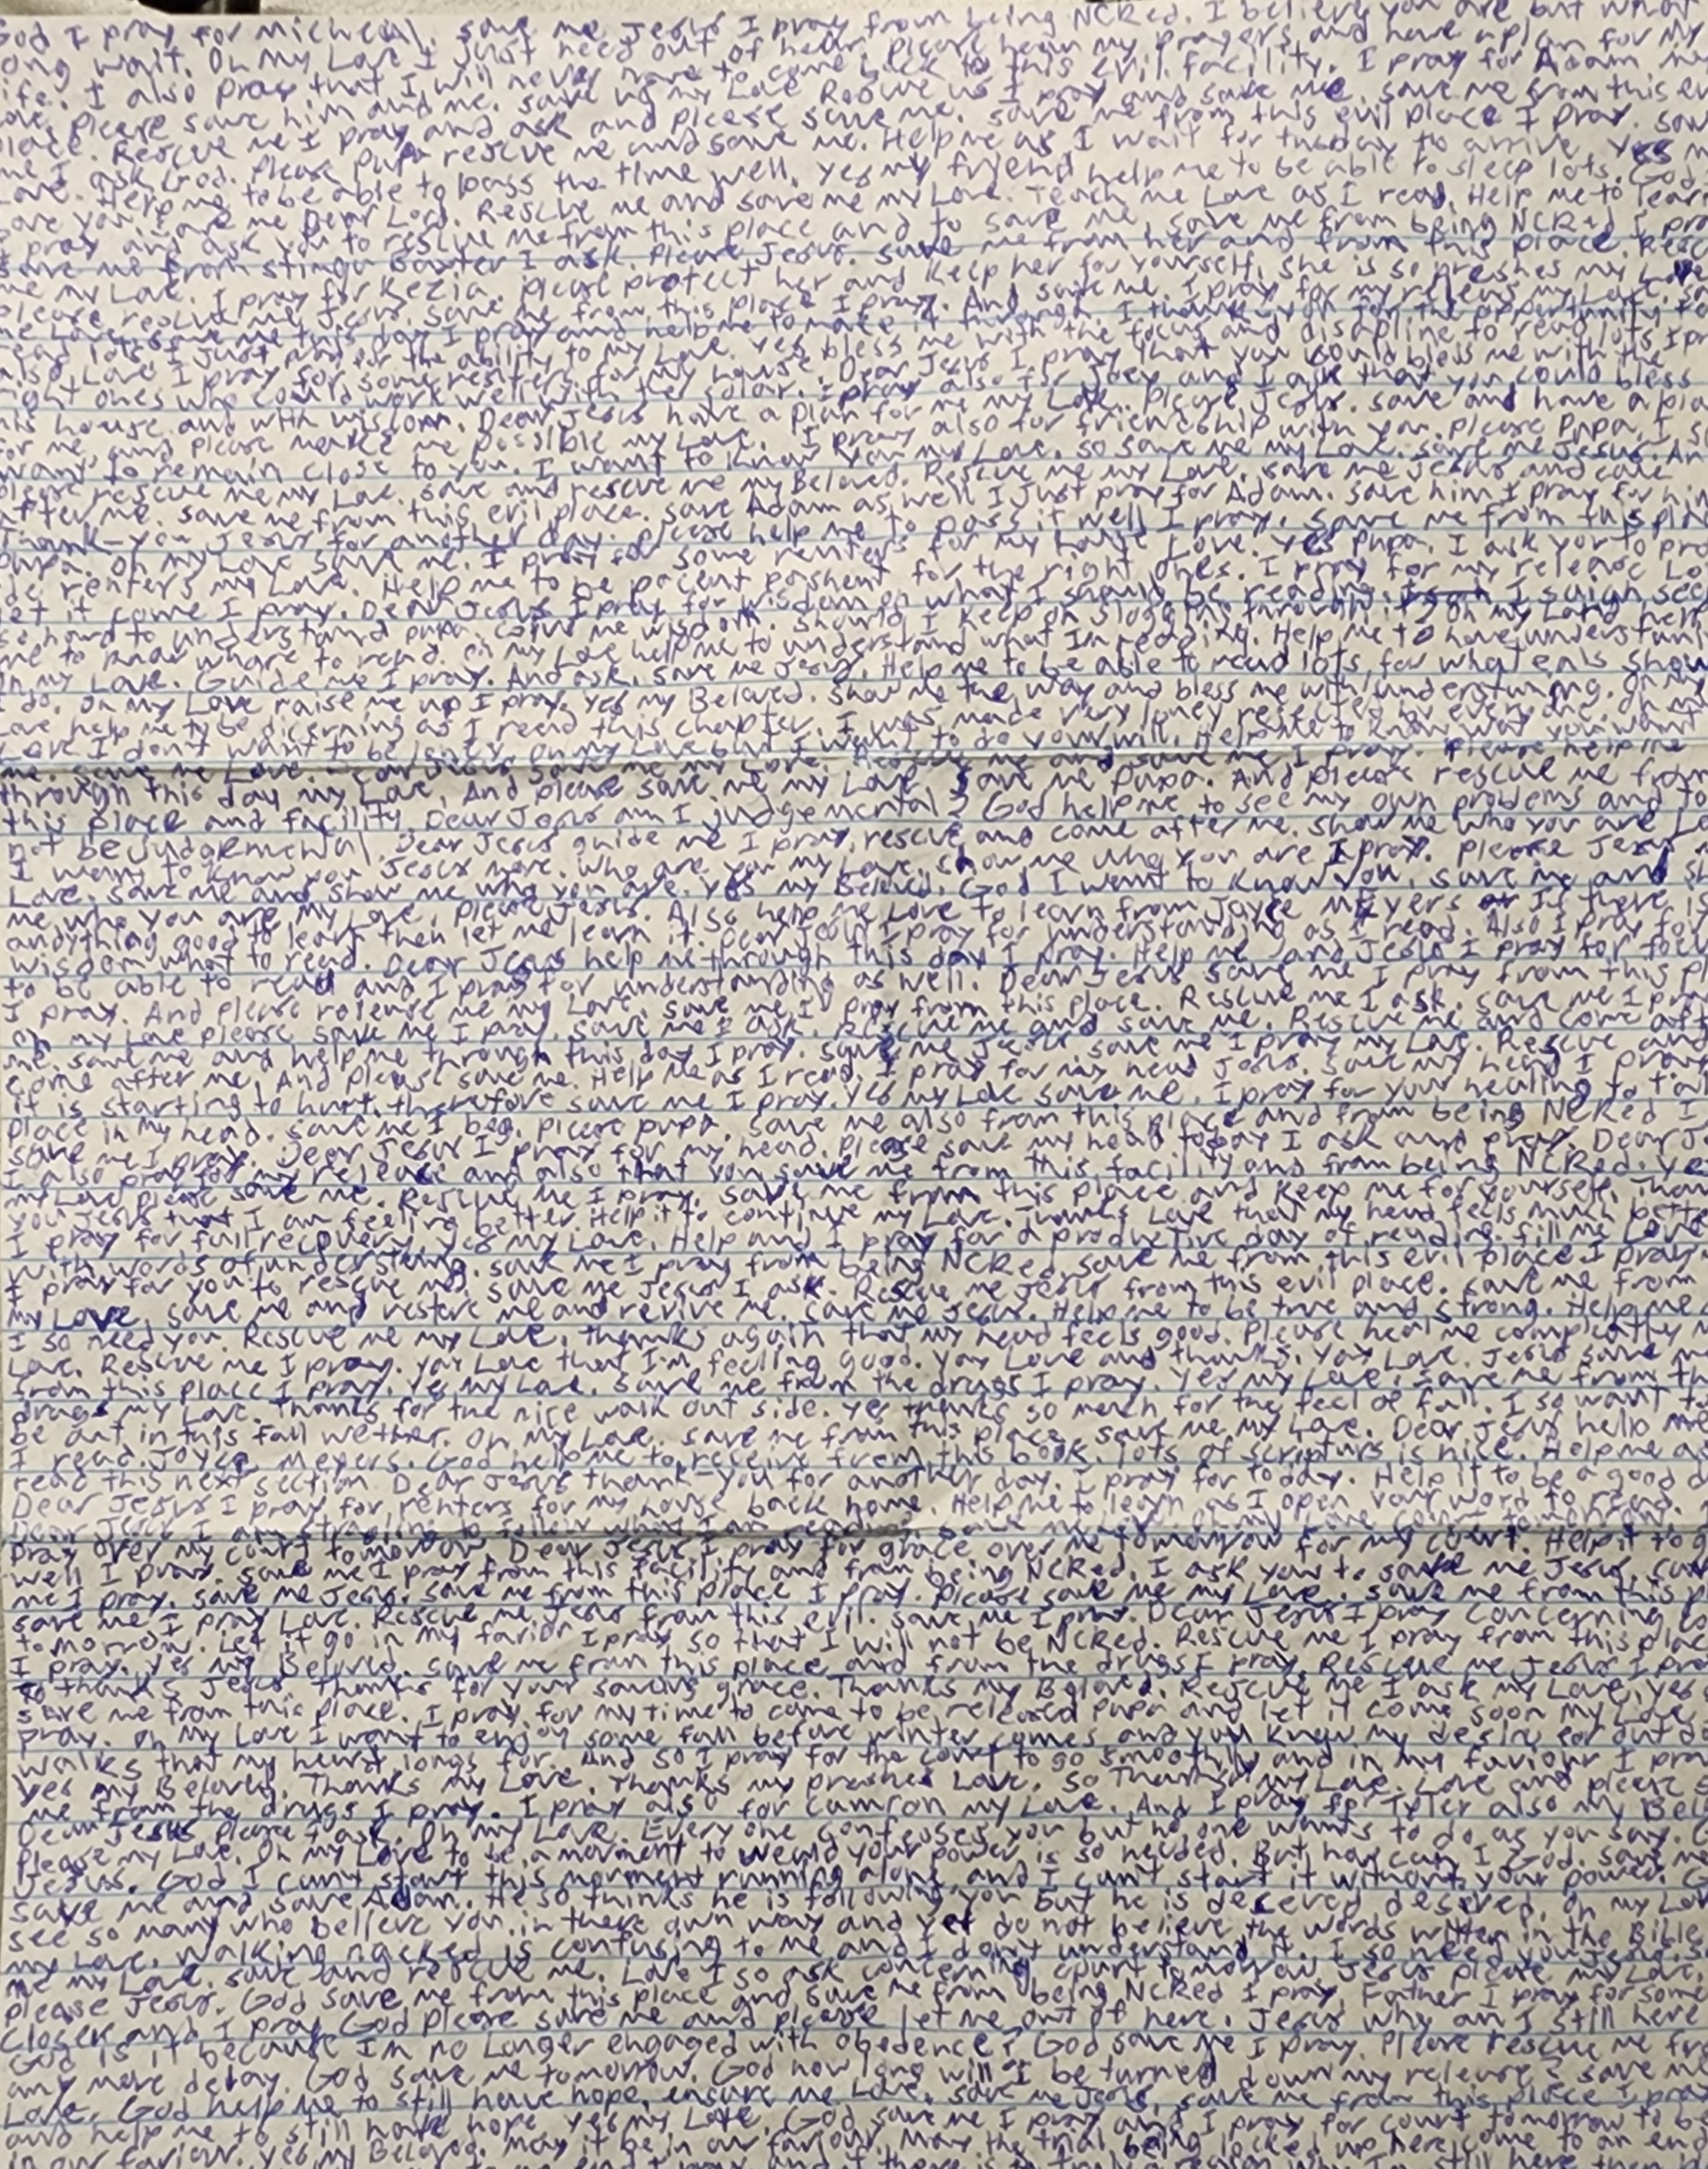 God I pray for Micheal. save me Jesus I pray from being NCRed. I believe you are but what
long wait. Oh my Love I just need out of hear. Please hear my prayers and have a plan for my
life. I also pray that I will never have to come back to this evil facility. I pray for Adam my
Love. Please save him and me. save us my Love Rescue us I pray and save me. save me from this evil
place. Rescue me I pray and ask and please save me. save me from this evil place I pray. save
me I ask God. Please Pupa rescue me and save me. Help me as I wait for tusday to arrive. Yes my
Love. Help me to be able to pass the time well. Yes my friend help me to be able to sleep lots. God
Love you. save me Dear Lord. Rescue me and save me my Love. Teach me Love as I read. Help me to learn
I pray and ask you to rescue me from this place and to save me. save me from being NCRed I pray
save me from I ask. Please Jesus. save me from her and from this place. Rescue
me my Love. I pray for Kezia. please protect her and keep her for yourself. she is so preshes my Love
please rescue me Jesus. save me from this place I pray. And save me. I pray for my release my Love.
me Love. save me this day I pray and help me to make it through. I thank-you for the opportunity to
read lots. I just pray for the ability to my Love. Yes bless me with the focus and disapline to read lots I pray
also Love I pray for some renters for my house. Dear Jesus I pray that you would bless me with the
right ones who could work well with the solar. I pray also for Joey and I ask that you could bless
his house and with wisdom. Dear Jesus have a plan for me my Love. Please Jesus. save and have a plan
for me and please make me possible my Love. I pray also for friendship with you. Please Pupa. I so
want to remain close to you. I want to know you my Love. so save me my Love. save me Jesus. And
please rescue me my Love. save and rescue me my Beloved. Rescue me my Love. save me Jesus and come
after me. save me from this evil place. save Adam as well I just pray for Adam. save him I pray for him
Thank-you Jesus for another day. please help me to pass it well I pray. save me from this place
Pupa. Oh my Love save me. I pray for some renters for my house Love. Yes Pupa. I ask you to pro
de renters my Love. Help me to be pacent pashent for the right ones. I pray for my release Love
let it come I pray. Dear Jesus I pray for wisdom on what I should be reading. I see
so hard to understand pupa. Give me wisdom. Should I keep on slogging through it? Oh my Love help
me to know where to read. Oh my Love help me to understand what Im reading. Help me to have understand
Oh my Love. Guide me I pray. And ask, save me Jesus. Help me to be able to read lots, for what els should
I do. Oh my Love raise me up I pray. Yes my Beloved. Show me the way and bless me with understanding. Oh my
Love help me to be dicerning as I read this chapter. I was made very loney rejected by every one. Oh my
Love I don't want to be loney. Oh my Love but I want to do your will. Help me to know what you want
me. save me Love. Dear Jesus save me my Love. Rescue me and save me I pray. Please help me
through this day my Love. And please save me my Love. Save me Pupa. And please rescue me from
this place and facility. Dear Jesus am I judgemental? God help me to see my own problems and to
not be judgemental. Dear Jesus guide me I pray, rescue and come after me. Show me who you are Love
I want to know you Jesus more. Who are you my Love, show me who you are I pray. Please Jesus m
Love. save me and show me who you are. Yes my Beloved. God I want to know you. save me and sh
me who you are my Love. Please Jesus. Also help me Love to learn from Joyce Meyers If there is
andything good to learn then let me learn it. Dear Jesus I pray for understanding as I read. Also I pray for
wisdom what to read. Dear Jesus help me through this day I pray. Help me and Jesus I pray for focus
to be able to read and I pray for understanding as well. Dear Jesus save me I pray from this pl
I pray. And please release me my Love. save me I pray from this place. Rescue me I ask. save me I pray
oh my Love please save me I pray. save me I ask. Rescue me and save me. Rescue me and come aft
me. save me and help me through this day I pray. save me Jesus save me I pray my Love. Rescue and
come after me. And please save me. Help me as I read. I pray for my head Jesus. save my head I pray
it is starting to hurt. therefore save me I pray. Yes my Love save me. I pray for your healing to take
place in my head. save me I beg. Please pupa. save me also from this place and from being NCRed I
save me I pray. Dear Jesus I pray for my head. Please save my head today I ask and pray. Dear J
I also pray for my release and also that you save me from this facility and from being NCRed. Yes
my Love please save me. Rescue me I pray. save me from this place and keep me for yourself. Than
you Jesus that I am feeling better. Help it to continue my Love. Thanks Love that my head feels much bette
I pray for full recovery. Yes my Love. Help and I pray for a productive day of reading. fill me Love
with words of understanding. save me I pray from being NCRed. save me from this evil place I pray
I pray for you to rescue me. save me Jesus I ask. Rescue me Jesus from this evil place. save me from
my Love, save me and restore me and revive me. save me Jesus. Help me to be true and strong. Help me
I so need you. Rescue me my Love. thanks again that my head feels good. Please heal me completly m
Love. Rescue me I pray. Yay Love that I'm feeling good. Yay Love and thanks. Yay Love. Jesus save me
from this place I pray. Yes my Love. save me from the drugs I pray. Yes my Love. save me from th
drugs my Love. Thanks for the nice walk out side. Yes thanks so much for the feel of fall. I so want to
be out in this fall wether. Oh my Love. save me from this place. save me my Love. Dear Jesus hello
I read Joyce Meyers. God help me to receive from this book. lots of scripturs is nice. Help me as
read this next section. Dear Jesus thank-you for another day. I pray for today. Help it to be a good d
Dear Jesus I pray for renters for my house back home. Help me to learn as I open your word to read.
Dear Jesus I am struggling to follow what I am reading. Oh my Love court tomorrow.
pray over my court tomorrow. Dear Jesus I pray for grace over me tomorrow for my court. Help it to g
well I pray. save me I pray from this facility and from being NCRed. I ask you to save me Jesus, save
me I pray. save me Jesus. save me from this place I pray. Please save me my Love. save me from this
save me I pray Love. Rescue me Jesus from this evil. save me I pray. Dear Jesus I pray concerning
tomorrow. Let it go in my favior I pray so that I will not be NCRed. Rescue me I pray from this place
I pray. Yes my Beloved. save me from this place and from the drugs I pray. Rescue me Jesus I pray
so thanks Jesus thanks for your saving grace. Thanks my Beloved. Rescue me I ask my Love, yes
save me from this place. I pray for my time to come to be released Pupa and let it come soon my Love
pray. Oh my Love I want to enjoy some fall before winter comes and you know my desire for out d
walks that my heart longs for. And so I pray for the court to go smoothly and in my faviour I pra
Yes my Beloved. Thanks my Love. Thanks my preshes Love. So Thanks my Love. Love and please s
me from the drugs I pray. I pray also for Camron my Love. And I pray for Tyler also my Bel
Dear Jesus please I ask. Oh my Love. Every one confesses you but no one wants to do as you say.
Please my Love. Oh my Love to be a movment to weald your power is so needed. But how can I God. save me
Jesus. God I can't start this movment running alone and I can't start it without your power.
save me and save Adam. He so thinks he is following you but he is deceved deseved. Oh my Lov
see so many who believe you in there own way and yet do not believe the words written in the Bible
my Love. Walking nacked is confusing to me and I don't understand it. I so need you Jesus. s
me my Love. save and rescue me. Love I so ask concerning court tomorrow. Jesus please my Love
please Jesus. God save me from this place and save me from being NCRed I pray. Father I pray for some
closer and I pray God please save me and please let me out of here. Jesus why am I still here
God is it because Im no longer engaged with obedence? God save me I pray. Please rescue me fr
any more delay. God save me tomorrow. God how long will I be turned down my release? save me
Love. God help me to still have hope, ensure me Love. save me Jesus, save me from this place I pra
and help me to still have hope. Yes my Love. God save me I pray and I pray for court tomorrow to b
in our faviour. Yes my Beloved. May it be in our faviour. May the trial being locked up here come to an end